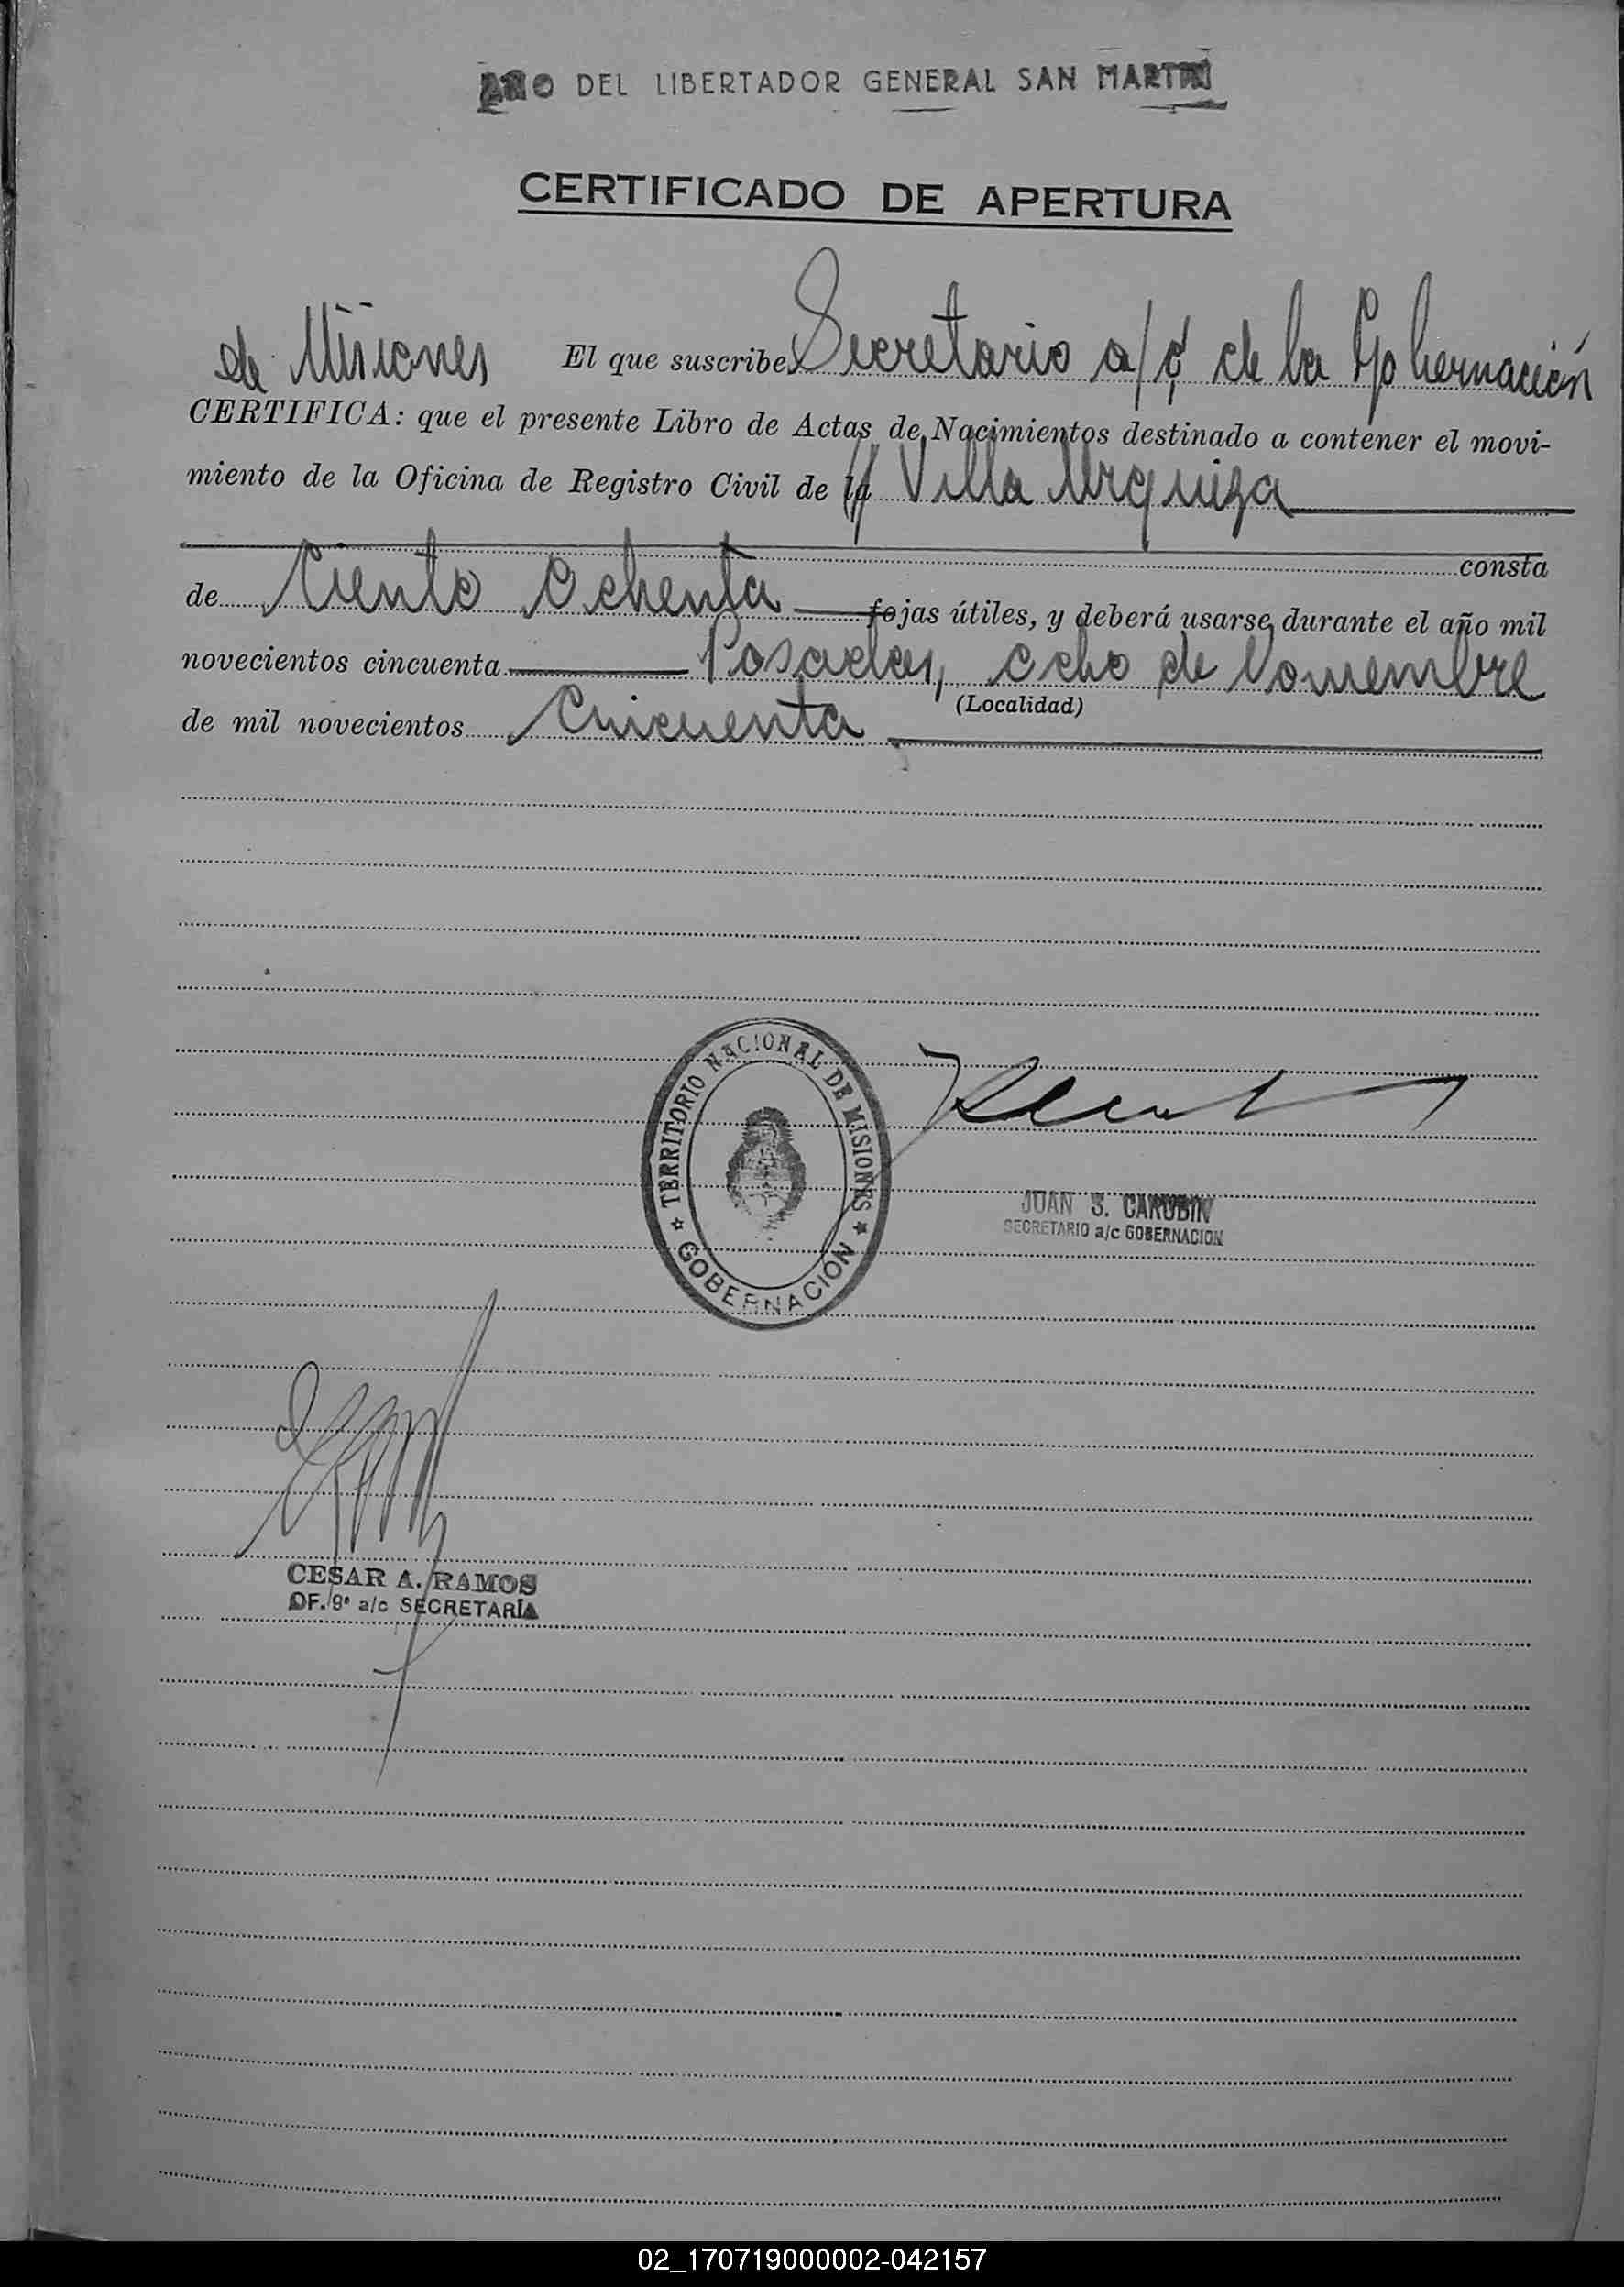 AÑO DEL LIBERTADOR GENERAL SAN MARTIN
CERTIFICADO DE APERTURA
de Misiones El que suscribe Secretario a/c de la Gobernación
CERTIFICA: que el presente Libro de Actas de Nacimientos destinado a contener el movi-
miento de la Oficina de Registro Civil de la Villa Urquiza
consta
de Ciento Ochenta fojas útiles, y deberá usarse durante el año mil
novecientos cincuenta Posadas, ocho de Noviembre
(Localidad)
de mil novecientos Cincuenta
TERRITORIO NACIONAL DE MISIONES
GOBERNACIÓN
JUAN S. CARUBIN
SECRETARIO a/c GOBERNACION
CESAR A. RAMOS
OF. 9º a/c SECRETARÍA
02_170719000002-042157